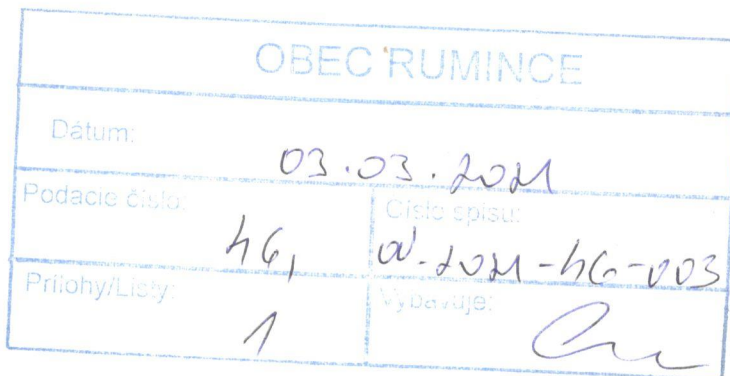 OBEC RUMINCE
Dátum:
03.03.2021
Podacie číslo:
46,
Číslo spisu:
-2021-46-003
Prílohy/Listy:
1
Vybavuje: